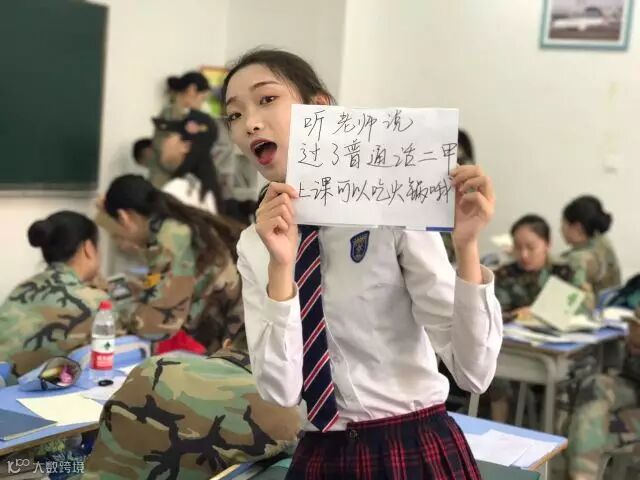 听老师说
过了普通话二甲
上课可以吃火锅哦
10100 大数跨境